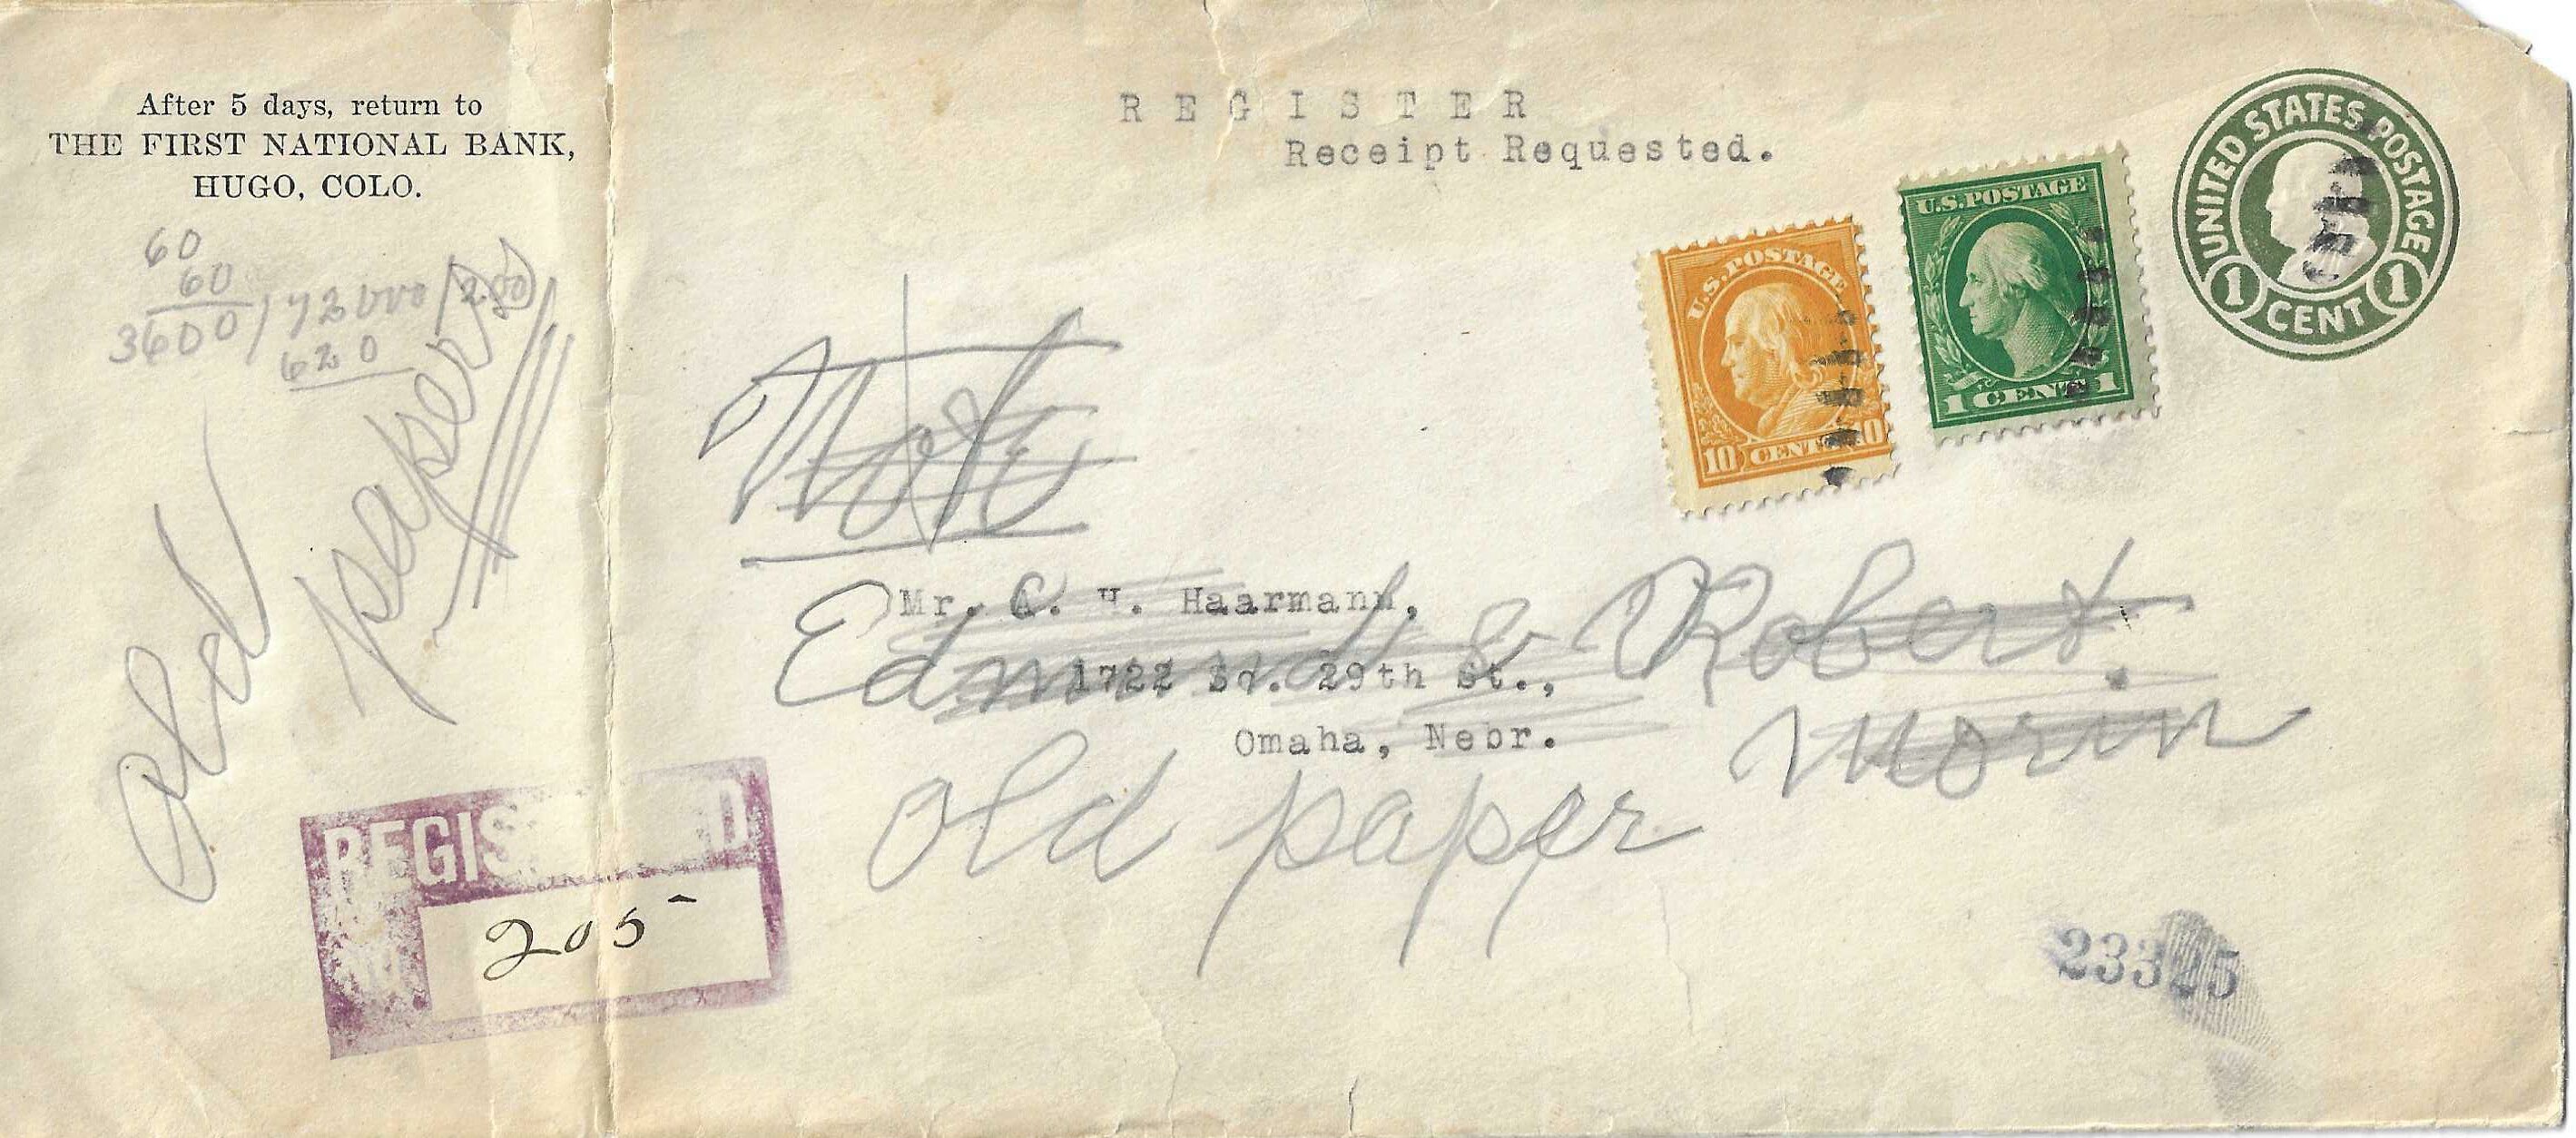 After 5 days, return to
THE FIRST NATIONAL BANK,
HUGO, COLO.
REGISTER
Receipt Requested.
UNITED STATES POSTAGE
1 CENT 1
U.S. POSTAGE
1 CENT 1
U.S. POSTAGE
10 CENTS 10
60
60
3600
620
old papers
Note
Mr. A. H. Haarmann,
Edmund & Robert
1722 So. 29th St.,
Morin
Omaha, Nebr.
old paper
REGISTERED
NO.
205
23325